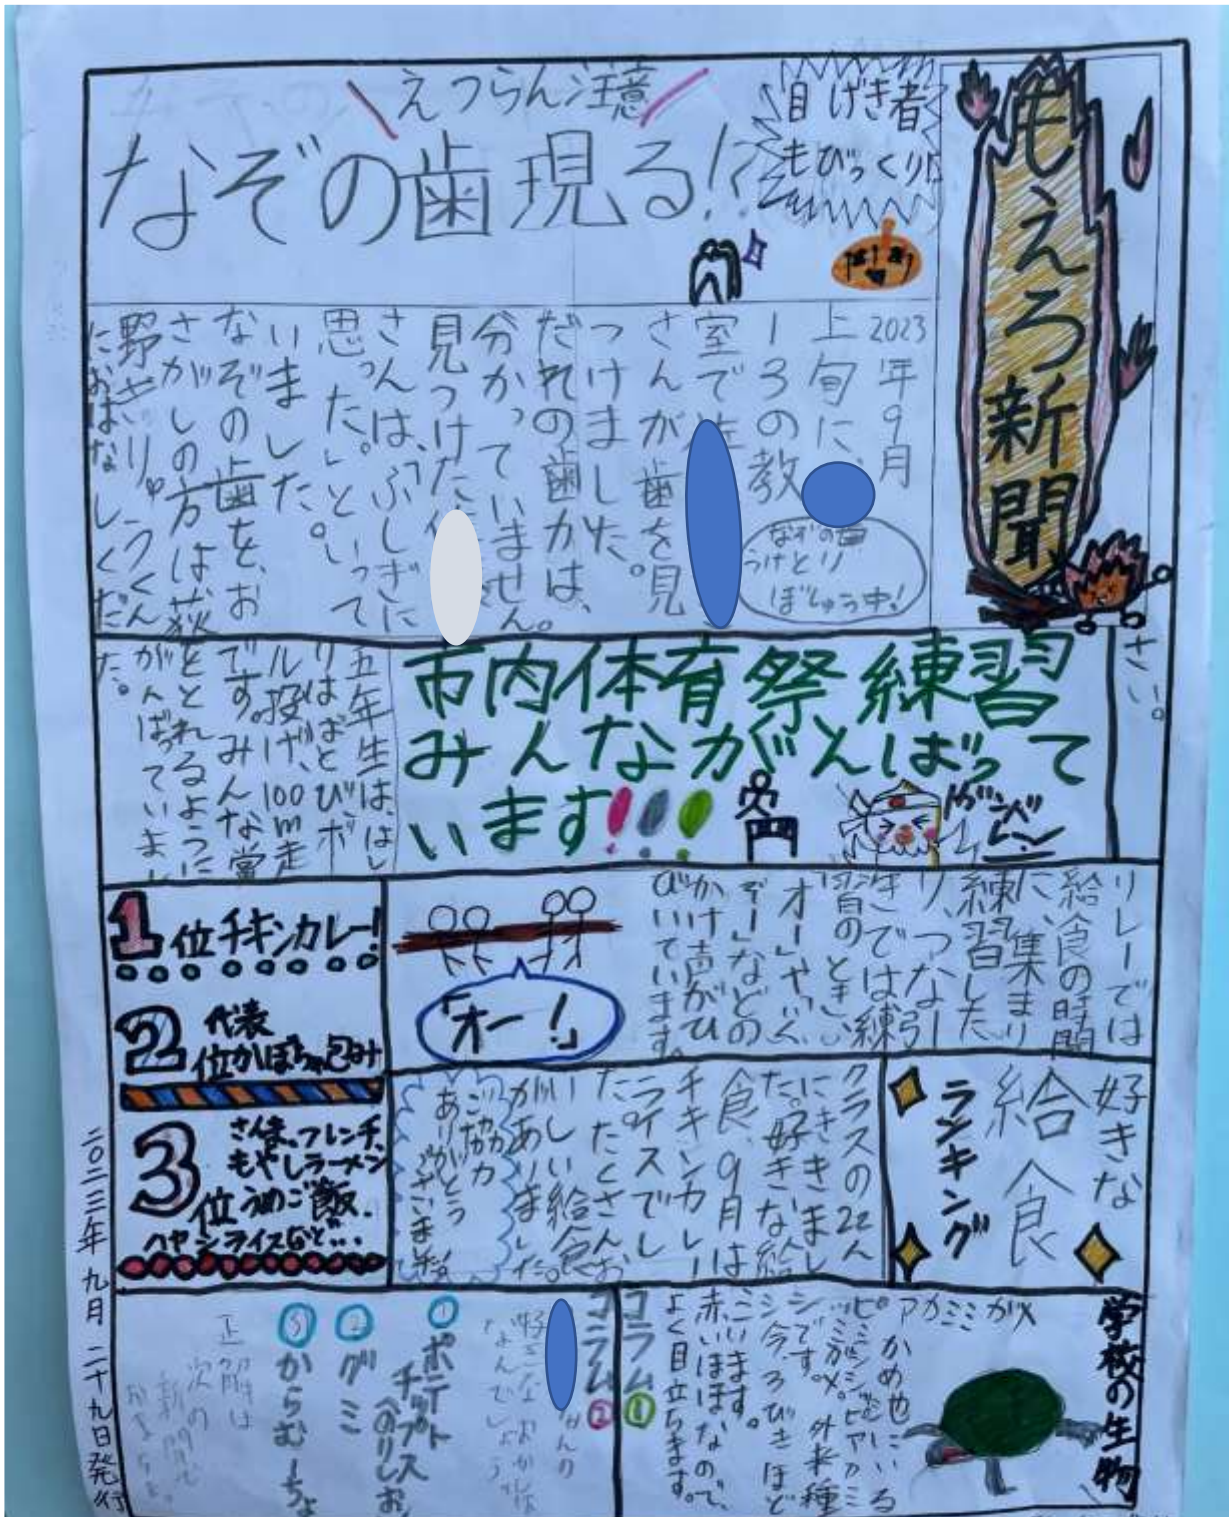 もえろ新聞
えつらん注意
なぞの歯現る!?
目げき者
もびっくり!!
2023年9月
上旬に、
1、3の教
室で
さんが歯を見
つけました。
だれの歯かは、
分かっていません。
見つけた
さんは、「ふしぎに
思った。」といって
いました。
なぞの歯を、お
さがしの方は荻
野
におはなしくだ
さい。
なぞの歯
うけとり
ぼしゅう中!
市内体育祭練習
みんながんばって
います!!!
ガンバレ〜
五年生は、はし
りはばとびボ
ール投げ、100m走
です。みんな賞
をとれるように
がんばっていまし
た。
リレーでは
給食の時間
に、集まり
練習した
り、つな引
きでは練
習のときに
オー」や「ぐ
ぞー」などの
かけ声がひ
びいています。
「オー!」
好きな
給食
ランキング
クラスの22人
にききまし
た。好きな給
食、9月は
チキンカレー
ライスでし
た。たくさんお
いしい給食
がありました。
ご協力
ありがとう
ございました。
1位チキンカレー!
2位
代表
かぼちゃ包み
3位
さんま、フレンチ、
もやしラーメン
うめご飯、
ハヤシライスなど…
学校の生物
コラム①
アカミミガメ
かめ池にいる
外来種
です。
今、ろびきほど
います。
赤いほほなので、
よく目立ちます。
コラム②
さんの
好きなおかしは
なんでしょう
①ポテト
チップス
(のりしお)
②グミ
③からむーちょ
正解は
次の
新聞で
二〇二三年 九月 二十九日発行